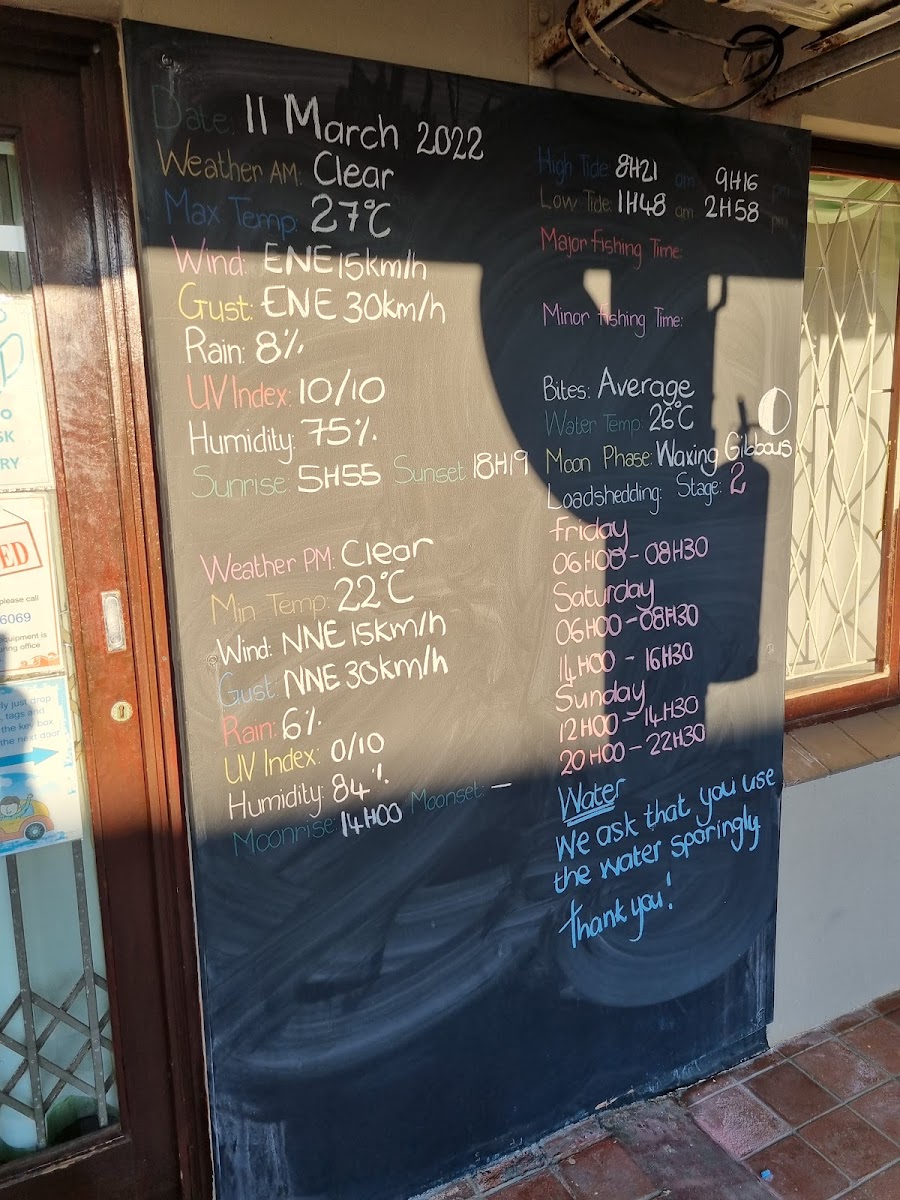 Date: 11 March 2022
Weather AM: Clear
Max Temp: 27°C
Wind: ENE 15km/h
Gust: ENE 30km/h
Rain: 8%
UV Index: 10/10
Humidity: 75%
Sunrise: 5H55 Sunset: 18H19
Weather PM: Clear
Min Temp: 22°C
Wind: NNE 15km/h
Gust: NNE 30km/h
Rain: 6%
UV Index: 0/10
Humidity: 84%
Moonrise: 14H00 Moonset: —
High Tide: 8H21 am 9H16 pm
Low Tide: 1H48 am 2H58 pm
Major Fishing Time:
Minor Fishing Time:
Bites: Average
Water Temp: 26°C
Moon Phase: Waxing Gibbous
Loadshedding: Stage: 2
Friday
06H00 - 08H30
Saturday
06H00 - 08H30
14H00 - 16H30
Sunday
12H00 - 14H30
20H00 - 22H30
Water
We ask that you use
the water sparingly
Thank you!
RY
ED
please call
6069
equipment is
office
just drop
tags and
the key box
the next door